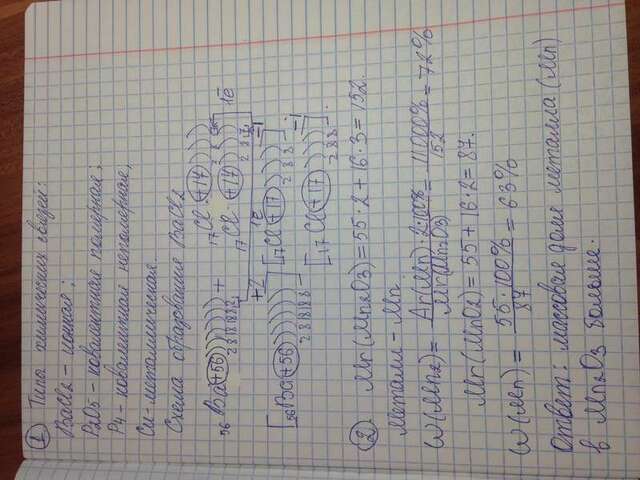 ① Типы химических связей:
BaCl2 - ионная;
P2O5 - ковалентная полярная;
P4 - ковалентная неполярная,
Cu - металлическая.
Схема образования BaCl2
17Cl +17)))
2 8 7 1e̅
56Ba +56)))))) + 17Cl +17)))
2 8 18 18 8 2 2 8 7 1e̅
[56Ba +56)))))] +2 [17Cl +17)))] -1
2 8 18 18 8 2 8 8
[17Cl +17)))] -1
2 8 8
② Mr(Mn2O3) = 55·2 + 16·3 = 152.
Металл - Mn
W(Mn2) = Ar(Mn)·2·100% / Mr(Mn2O3) = 11000% / 152 = 72%
Mr(MnO2) = 55 + 16·2 = 87.
W(Mn) = 55·100% / 87 = 63%
Ответ: массовая доля металла (Mn)
в Mn2O3 больше.